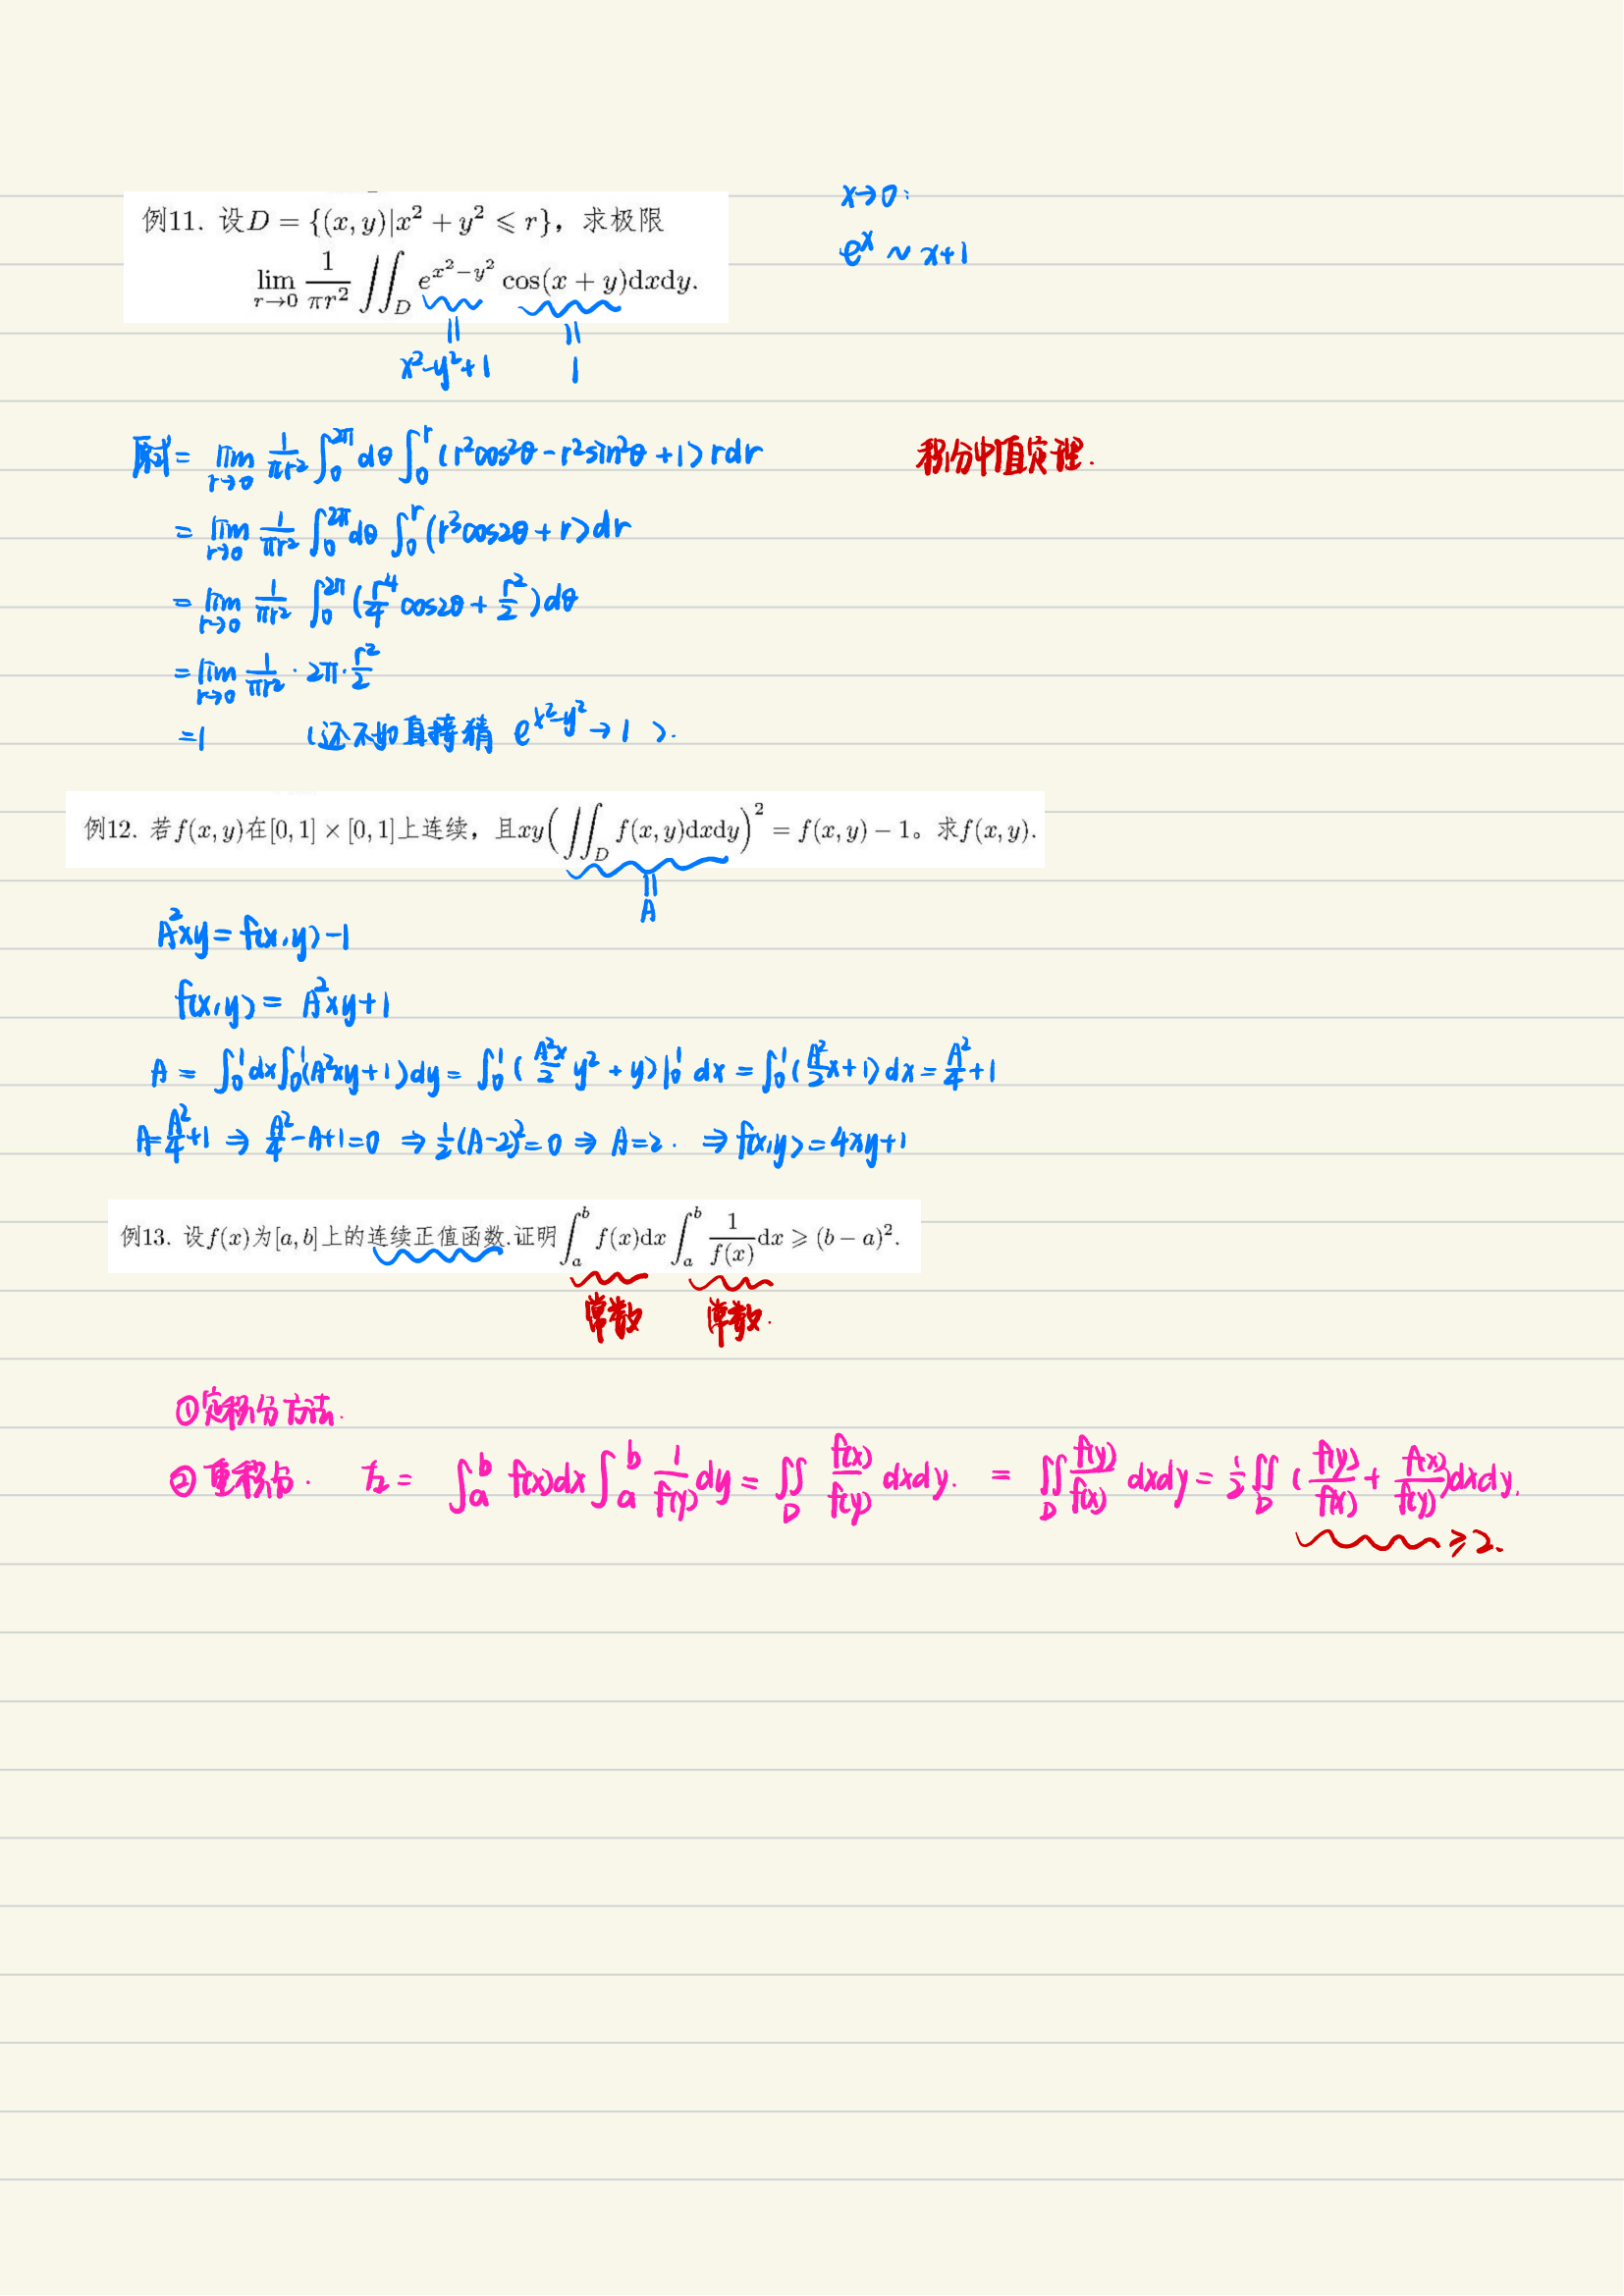 例11. 设D = {(x, y)|x² + y² ⩽ r}，求极限
lim_{r→0} 1/(πr²) ∬_D e^{x²−y²} cos(x + y)dxdy.
x→0:
e^x ~ x+1
|| ||
x²-y²+1 1
原式 = lim_{r→0} 1/(πr²) ∫_0^{2π} dθ ∫_0^r (r²cos²θ - r²sin²θ + 1) r dr
积分中值定理.
= lim_{r→0} 1/(πr²) ∫_0^{2π} dθ ∫_0^r (r³cos2θ + r) dr
= lim_{r→0} 1/(πr²) ∫_0^{2π} (r⁴/4 cos2θ + r²/2) dθ
= lim_{r→0} 1/(πr²) · 2π · r²/2
= 1 (还不如直接猜 e^{x²-y²} → 1 ).
例12. 若f(x, y)在[0, 1] × [0, 1]上连续，且xy(∬_D f(x, y)dxdy)² = f(x, y) − 1。求f(x, y).
||
A
A²xy = f(x,y) - 1
f(x,y) = A²xy + 1
A = ∫_0^1 dx ∫_0^1 (A²xy+1) dy = ∫_0^1 (A²x/2 y² + y)|_0^1 dx = ∫_0^1 (A²/2 x + 1) dx = A²/4 + 1
A = A²/4 + 1 ⇒ A²/4 - A + 1 = 0 ⇒ 1/2 (A-2)² = 0 ⇒ A = 2. ⇒ f(x,y) = 4xy + 1
例13. 设f(x)为[a, b]上的连续正值函数.证明∫_a^b f(x)dx ∫_a^b 1/f(x) dx ⩾ (b − a)².
常数 常数.
①定积分方法.
②重积分. 左 = ∫_a^b f(x)dx ∫_a^b 1/f(y) dy = ∬_D f(x)/f(y) dxdy. = ∬_D f(y)/f(x) dxdy = 1/2 ∬_D (f(y)/f(x) + f(x)/f(y)) dxdy.
⩾2.